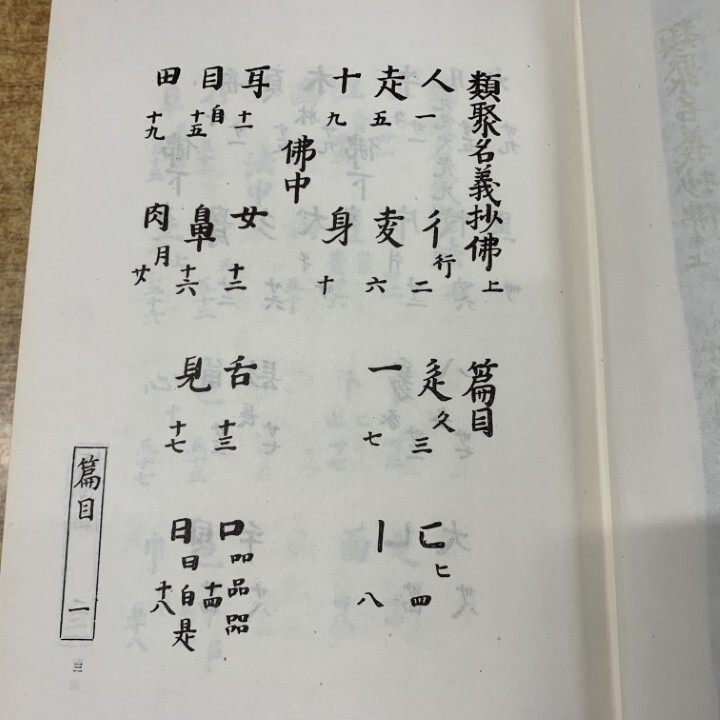 類聚名義抄佛上 篇目
人一 彳行二 辵久三 匚匕四
走五 麦六 一七 丨八
十九 身十
佛中
耳十一 女十二 舌十三 口吅品㗊十四
目自十五 鼻十六 見十七 日曰白是十八
田十九 肉月廿
篇目 一
三